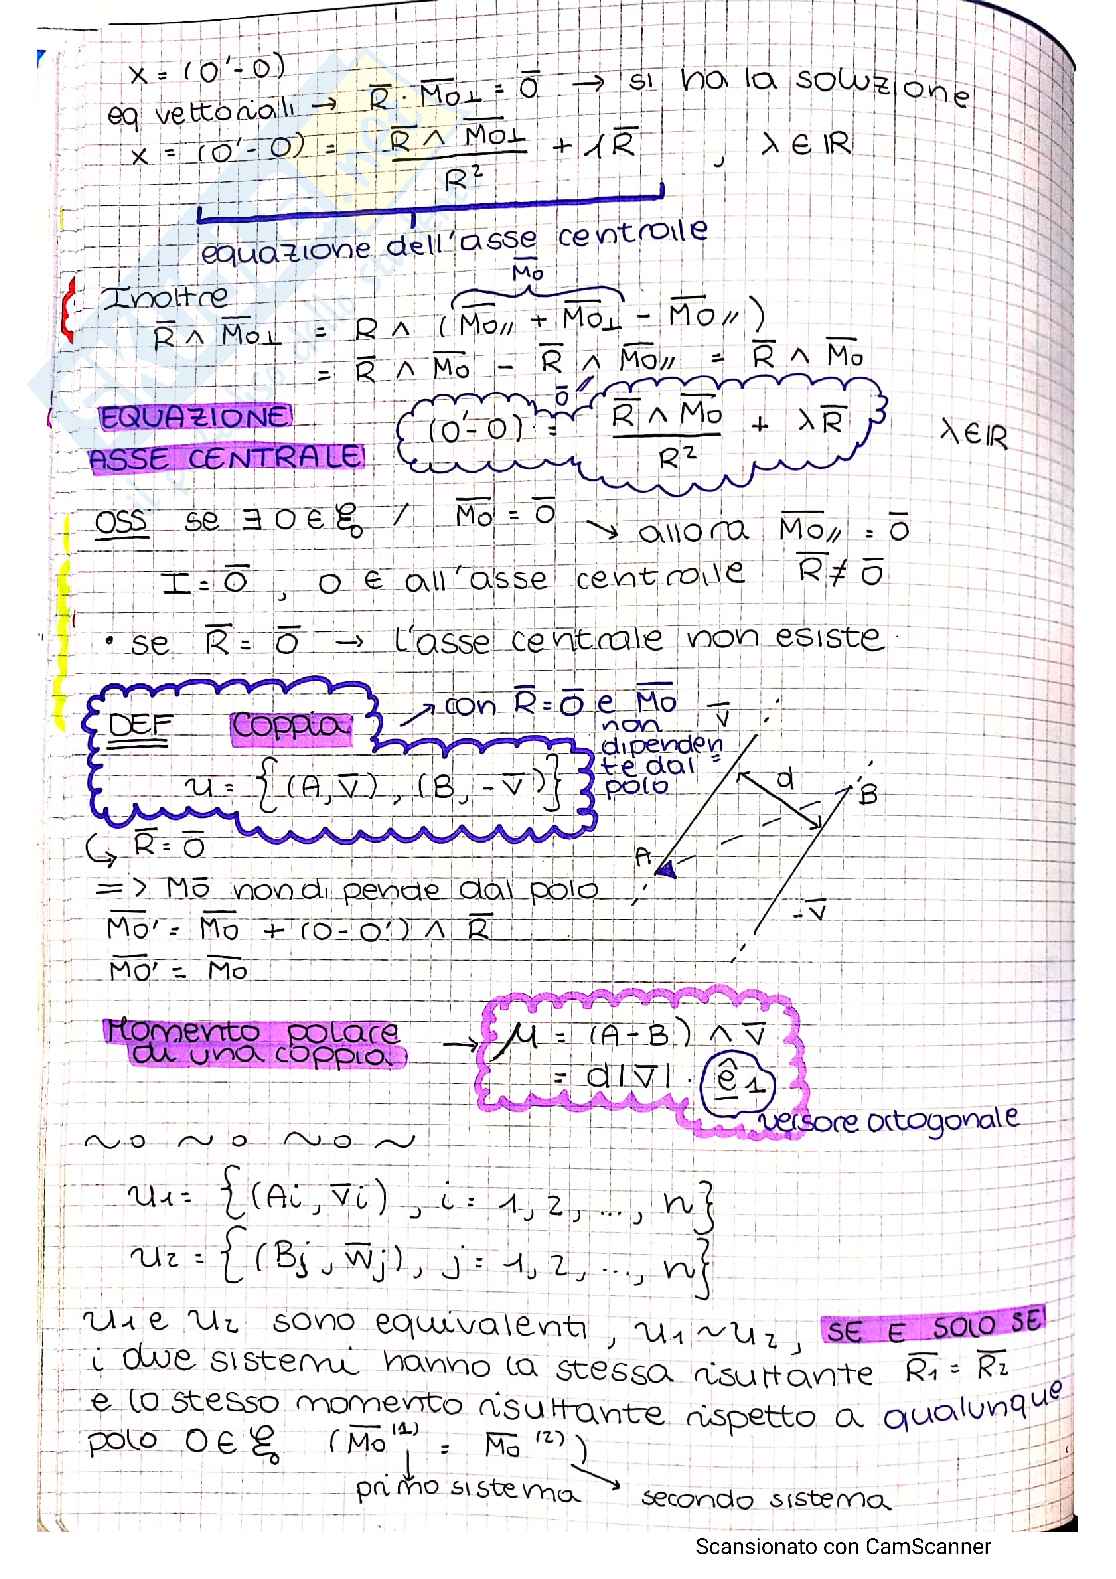 x = (O'-O)
eq vettoriali → R̅ · M̅o⊥ = 0̅ → si ha la soluzione
x = (O'-O) = R̅ ∧ M̅o⊥ / R² + λR̅ , λ ∈ ℝ
equazione dell'asse centrale
M̅o
Inoltre
R̅ ∧ M̅o⊥ = R ∧ (M̅o// + M̅o⊥ - M̅o//)
= R̅ ∧ M̅o - R̅ ∧ M̅o// = R̅ ∧ M̅o
0̅
EQUAZIONE
ASSE CENTRALE
(O'-O) = R̅ ∧ M̅o / R² + λR̅ λ∈ℝ
OSS se ∃ O ∈ ℰ₀ / M̅o = 0̅ ↘ allora M̅o// = 0̅
I = 0̅ , O ∈ all'asse centrale R̅ ≠ 0̅
• se R̅ = 0̅ → l'asse centrale non esiste.
DEF Coppia
↗ con R̅ = 0̅ e M̅o
non
dipenden
te dal =
polo
u = {(A, v̅), (B, -v̅)}
v̅
d
B
A
-v̅
↳ R̅ = 0̅
=> M̅o non dipende dal polo
M̅o' = M̅o + (O-O') ∧ R̅
M̅o' = M̅o
Momento polare
di una coppia
→ μ = (A-B) ∧ v̅
= d|v̅| · ê₁
versore ortogonale
~o ~o ~o ~
u₁ = {(Ai, v̅i), i = 1, 2, ..., n}
u₂ = {(Bj, w̅j), j = 1, 2, ..., n}
u₁ e u₂ sono equivalenti, u₁ ~ u₂, SE E SOLO SE
i due sistemi hanno la stessa risultante R̅₁ = R̅₂
e lo stesso momento risultante rispetto a qualunque
polo O ∈ ℰ₀ (M̅o⁽¹⁾ = M̅o⁽²⁾)
primo sistema
secondo sistema
Scansionato con CamScanner